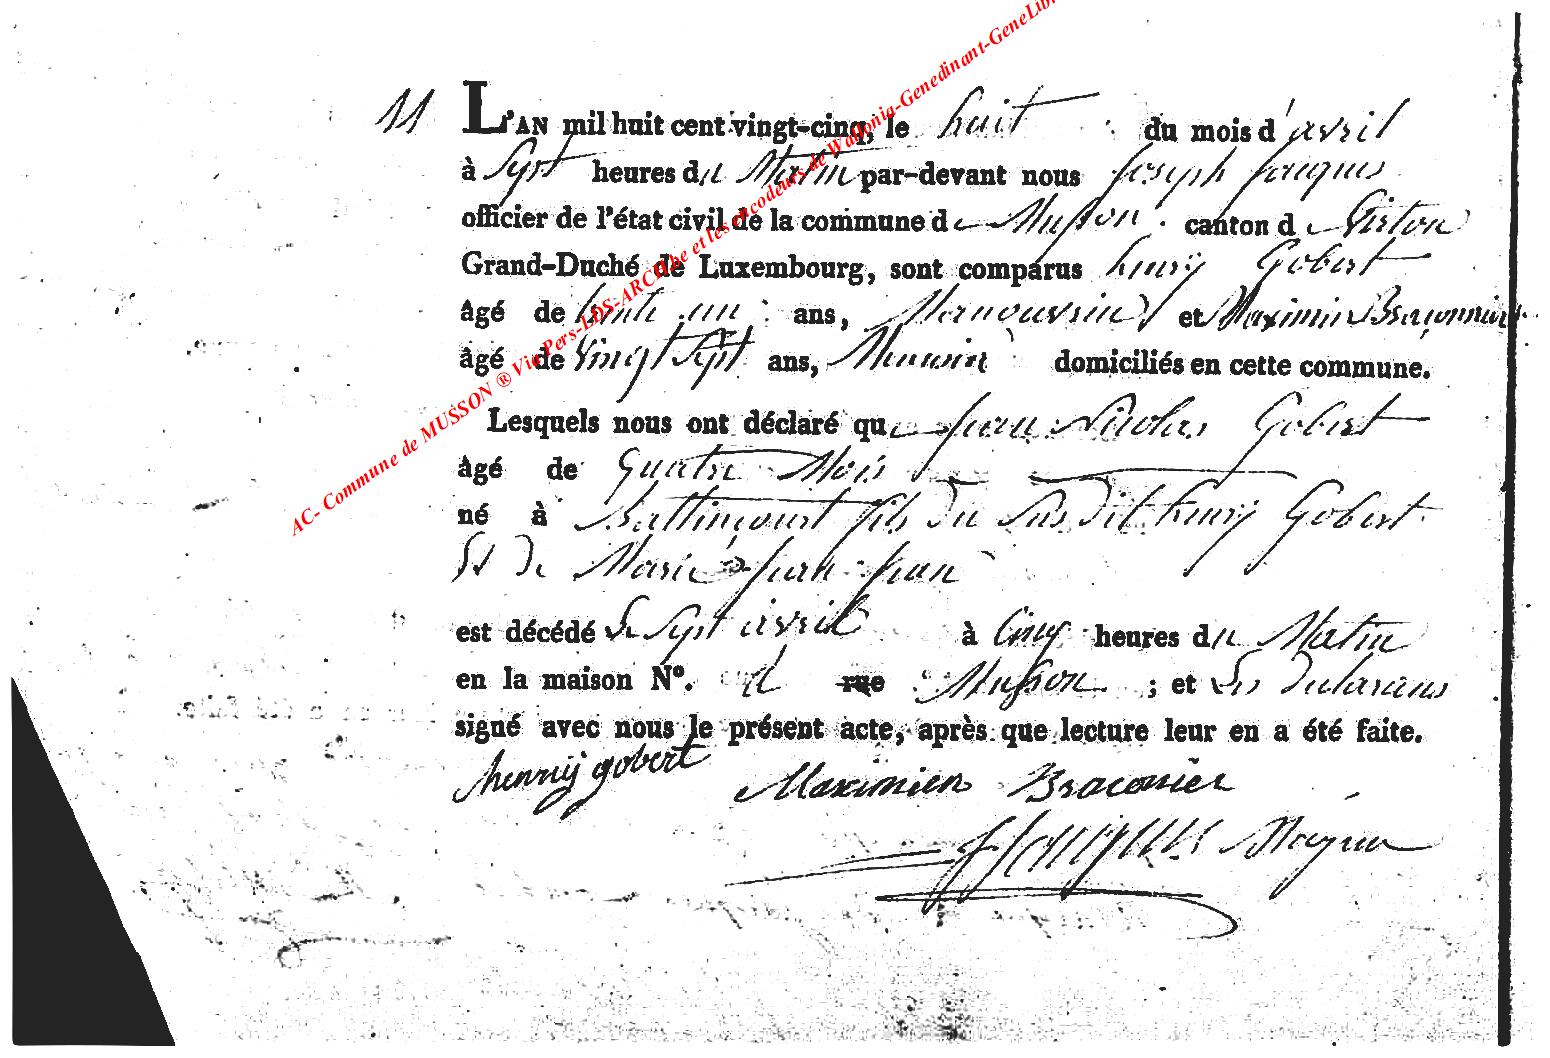 11 L'AN mil huit cent vingt-cinq, le huit du mois d'avril
à Sept heures du Matin par-devant nous Joseph Jacques
officier de l'état civil de la commune de Musson canton de Virton
Grand-Duché de Luxembourg, sont comparus henry Gobert
âgé de trente un ans, Manouvrier et Maximin Braconnier
âgé de Vingt Sept ans, domiciliés en cette commune.
Lesquels nous ont déclaré que Jean Nicolas Gobert
âgé de Quatre Mois
né à Battincourt fils du Sus dit henry Gobert
Et de Marie Jean
est décédé Le Sept avril à Cinq heures du Matin
en la maison N°. d rue Musson ; et Les Dclarans
signé avec nous le présent acte, après que lecture leur en a été faite.
henrij gobert Maximien Braconier
J Jacques Mayeur
AC- Commune de MUSSON ® Via Pers-LDS-ARCH.be et les encodeurs de Wallonia-Genedinant-GeneLib